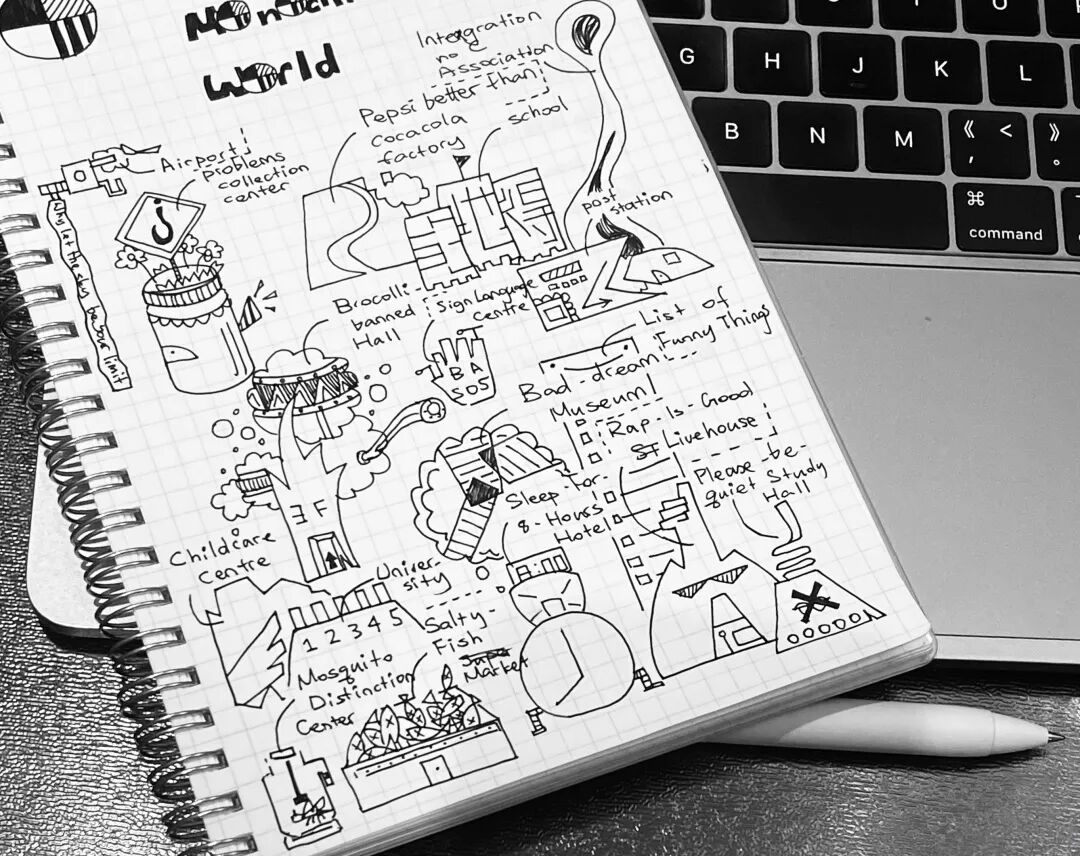 World
Intergration
no
Association
Pepsi better than
cocacola
factory
school
Airport
problems
collection
center
post
station
Brocolli
banned
Hall
Sign Language
centre
BA
SOS
List of
Funny Things
Bad-dream
Museum
Rap-Is-Good
Livehouse
Please be
quiet Study
Hall
Sleep-for-
8-Hours
Hotel
Childcare
Centre
Univer-
sity
1 2 3 4 5
Salty-
Fish
Market
Mosquito
Distinction
Center
G H J K L
B N M
command